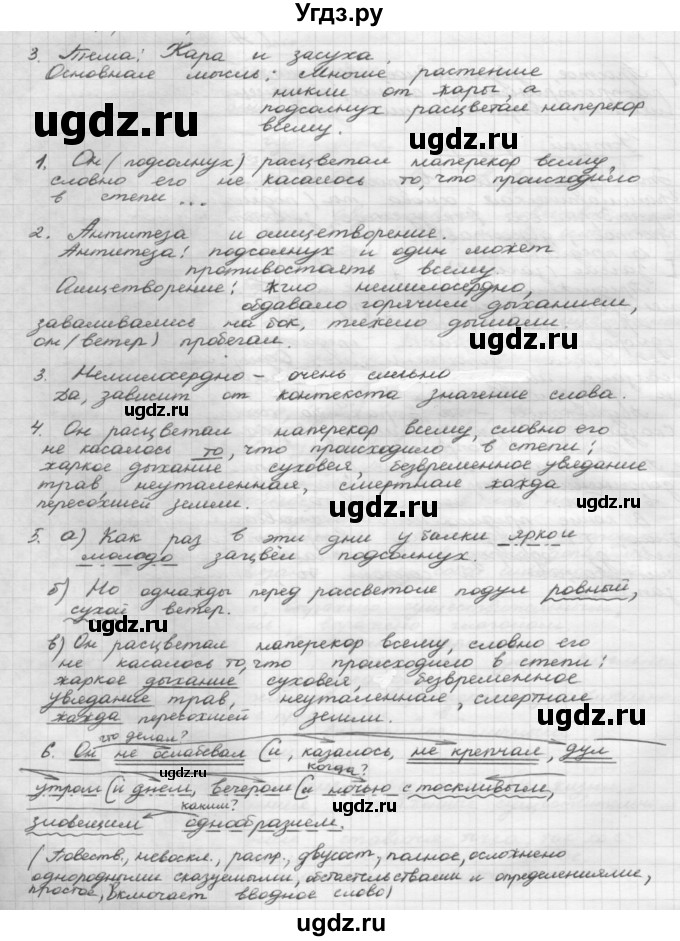 Угдз.ру
3. Тема: Жара и засуха.
Основная мысль: Многие растение
никли от жары, а
подсолнух расцветал наперекор
всему.
ugdz.ru
ugdz.ru
1. Он (подсолнух) расцветал наперекор всему,
словно его не касалось то, что происходило
в степи ...
ugdz.ru
2. Антитеза и олицетворение.
Антитеза: подсолнух и один может
противостоять всему.
Олицетворение: жгло немилосердно,
обдавало горячим дыханием,
заваливались на бок, тяжело дышали.
он (ветер) пробегал.
ugdz.ru
ugdz.ru
3. Немилосердно - очень сильно
Да, зависит от контекста значение слова.
ugdz.ru
4. Он расцветал наперекор всему, словно его
не касалось то, что происходило в степи:
жаркое дыхание суховея, безвременное увядание
трав неутоленная, смертная жажда
пересохшей земли.
ugdz.ru
ugdz.ru
5. а) Как раз в эти дни у балки ярко и
молодо зацвёл подсолнух.
ugdz.ru
б) Но однажды перед рассветом подул ровный,
сухой ветер.
ugdz.ru
в) Он расцветал наперекор всему, словно его
не касалось то, что происходило в степи:
жаркое дыхание суховея, безвременное
увядание трав, неутоленная, смертная
жажда пересохшей земли.
ugdz.ru
ugdz.ru
что делал?
6. Он не ослабевал (и, казалось, не крепчал, дул
когда?
утром (и днем, вечером (и ночью с тоскливым,
каким?
зловещим однообразием.
ugdz.ru
ugdz.ru
(Повеств., невоскл., распр., двусост., полное, осложнено
однородными сказуемыми, обстоятельствами и определениями,
простое, включает вводное слово)
ugdz.ru
ugdz.ru